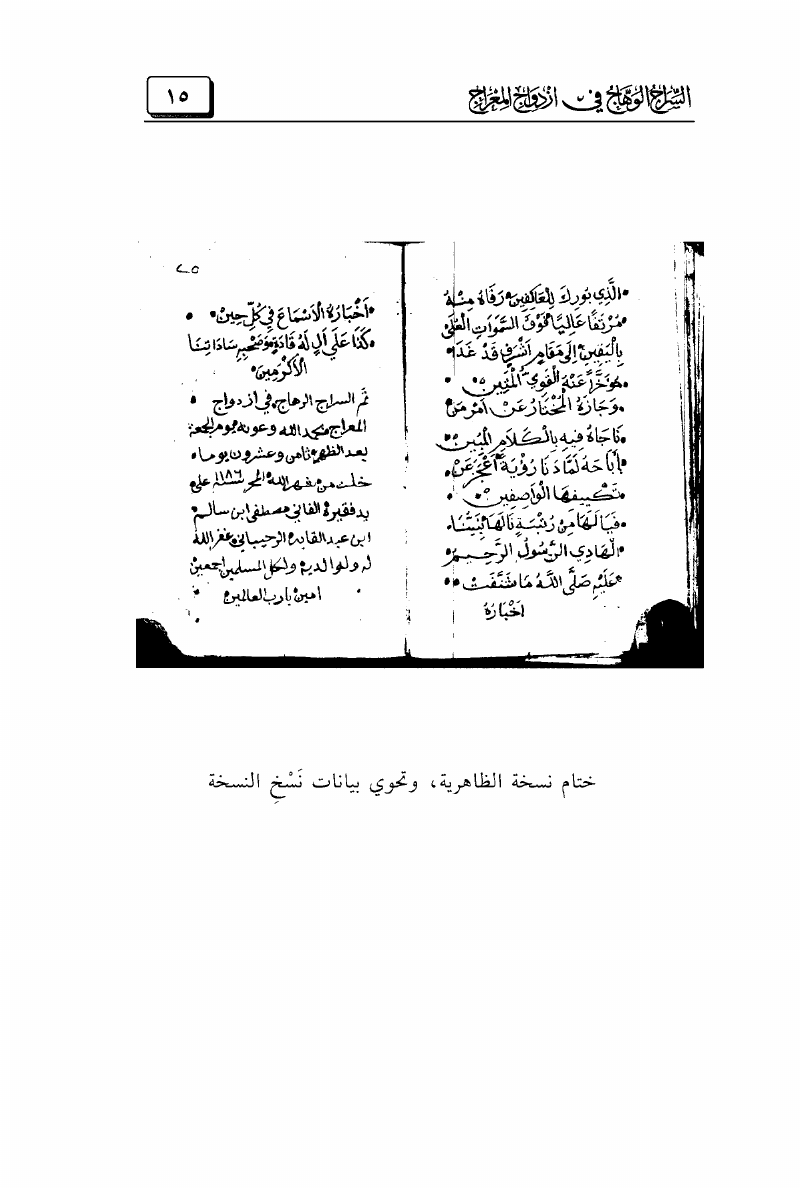 السِّرَاجُ الوَهَّاجُ في ازْدِوَاجِ المِعْرَاجِ
١٥
الَّذِي بُورِكَ لِلعَاكِفِينَ رَقَاهُ مِنْهُ
مُرْتَقًا عَالِيًا فَوْقَ السَّمَوَاتِ العُلَى
بِاليَقِينِ إِلَى مَقَامٍ أَشْرَفٍ قَدْ غَدَا
مُؤَخَّرًا عَنْهُ القَوِيُّ المَتِينُ
وَجَازَهُ المُخْتَارُ عَنْ أَمْرِ مَنْ
نَاجَاهُ فِيهِ بِالْكَلَامِ المُبِينِ
أَبَاحَهُ لَمَّا دَنَا رُؤْيَةً أَعْجَزَ عَنْ
تَكْيِيفِهَا الْوَاصِفِينَ
فَيَا لَهَا مِنْ رُتْبَةٍ نَالَهَا نَبِيُّنَا
الْهَادِي الرَّسُولُ الرَّحِيمُ
عَلَيْهِ صَلَّى اللَّهُ مَا شَنَّفَتْ
أَخْبَارُهُ
٢٥
أَخْبَارُهُ الْأَسْمَاعَ فِي كُلِّ حِينٍ
كَذَا عَلَى آلٍ لَهُ قَادَةٍ وَصَحْبِهِ سَادَاتِنَا
الْأَكْرَمِينَ
تم السراج الوهاج في ازدواج
المعراج بحمد الله وعونه يوم الجمعة
بعد الظهر ثامن وعشرون يوما
خلت من شهر الله المحرم ١١٨٦ على
يد فقيره الفاني مصطفى ابن سالم
ابن عبد القادر الرحيباني غفر الله
له ولوالديه ولكل المسلمين اجمعين
امين يا رب العالمين
ختام نسخة الظاهرية، وتحوي بيانات نَسْخِ النسخة